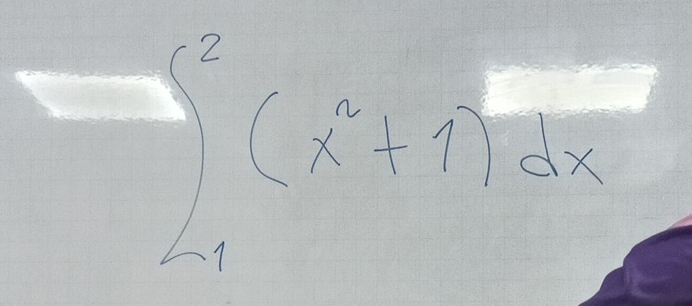 ∫₁² (x² + 1) dx